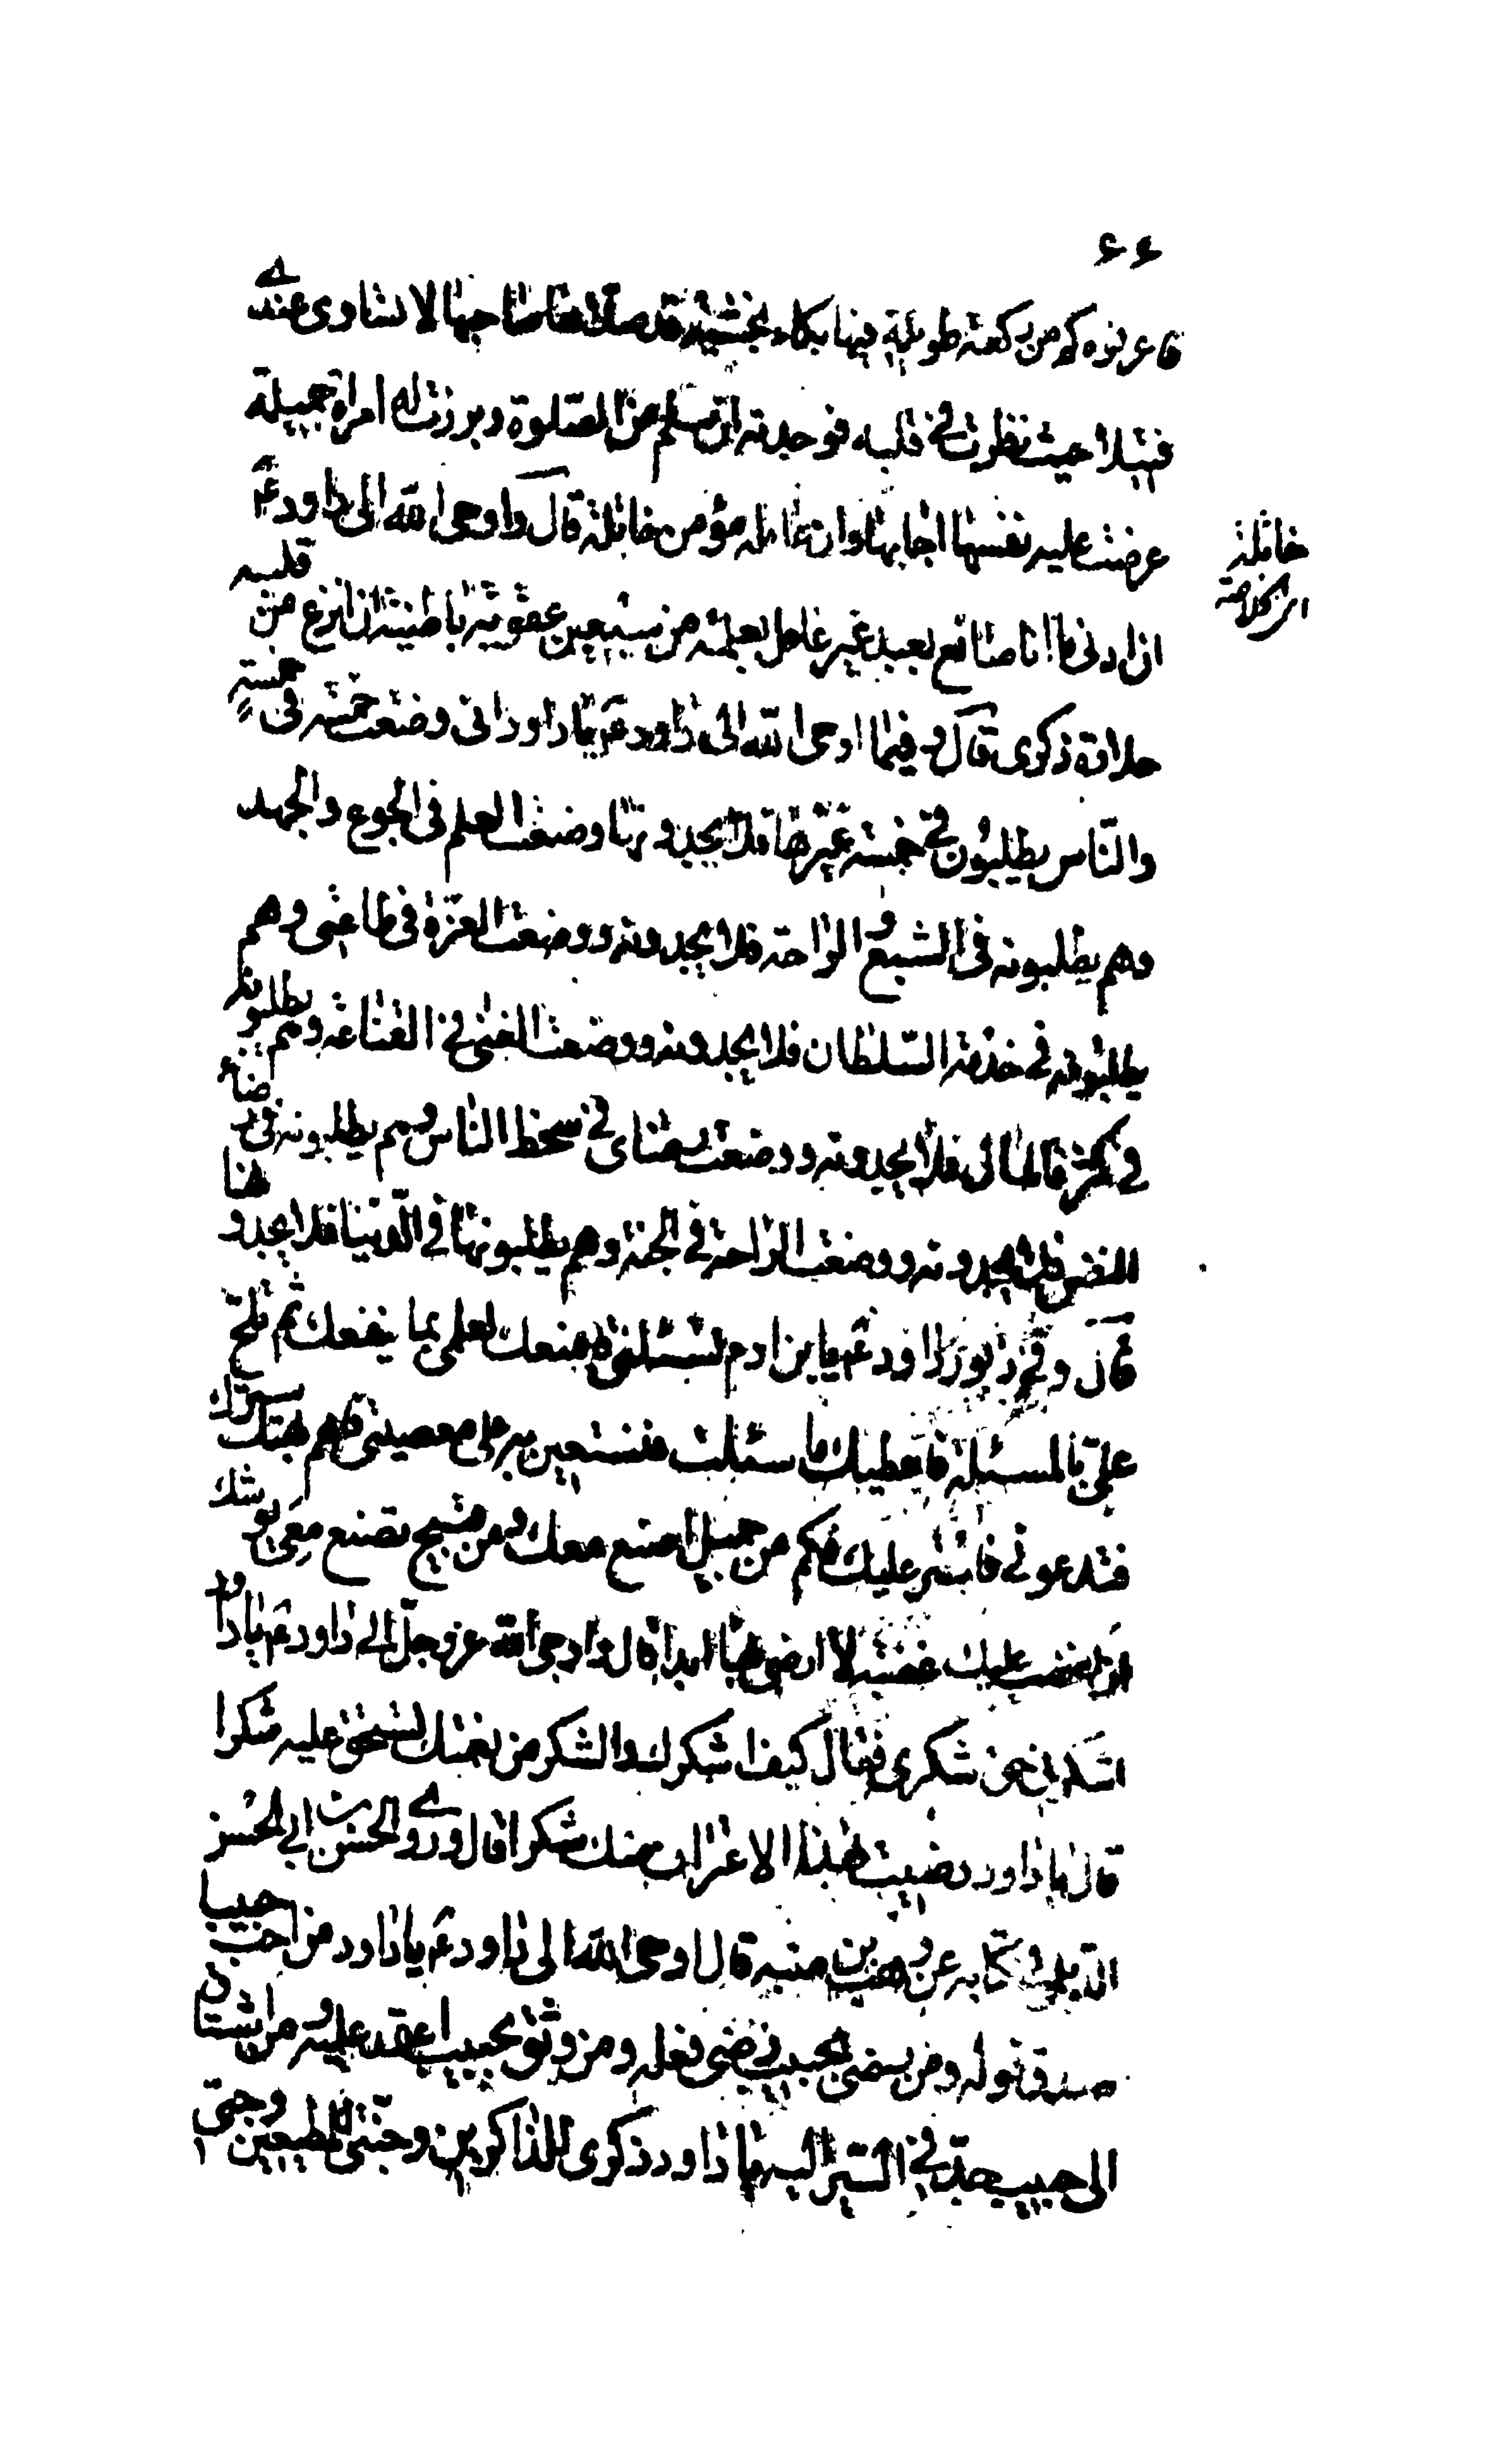 ۶۶
فاعرفوه كم من ركعة طويلة فيها بكاء بخشية قد صلاها صاحبها لا تساوى عندى
فتيلا حيث نظرت فى قلبه فوجدته ان سلم من الصلوة وبرزت له امراة جميلة
عرضت عليه نفسها اجابها وان عامله مؤمن خاتله قال واوحى الله الى داود ع
خاتله
ان ادنى ما انا صانع بعبد غير عامل بعلمه من سبعين عقوبة باطنية ان انزع من قلبه
حلاوة ذكرى قال وفيما اوحى الله الى داود ع يا داود انى وضعت خمسة فى خمسة
والناس يطلبون فى خمسة غيرها فلا يجدونها وضعت العلم فى الجوع والجهد
وهم يطلبونه فى الشبع والراحة فلا يجدونه ووضعت العزة فى طاعتى وهم
يطلبونه فى خدمة السلطان فلا يجدونه ووضعت الغنى فى القناعة وهم يطلبونه
فى كثرة المال فلا يجدونه ووضعت رضاى فى سخط الناس وهم يطلبونه فى رضاء
النفس فلا يجدونه ووضعت الراحة فى الجنة وهم يطلبونها فى الدنيا فلا يجدونها
قال وفى زبور داود ع يا بن ادم تسئلنى فامنعك لعلمى بما ينفعك ثم تلح
على بالمسئلة فاعطيك ما سئلت فتستعين به على معصيتى فاهم بهتك سترك
فتدعونى فاستر عليك فكم من جميل اصنع معك وكم من قبيح تصنع معى يوشك
ان اغضب عليك غضبة لا ارضى بعدها ابدا قال واوحى الله عز وجل الى داود ع يا داود
اشكرنى حق شكرى فقال كيف اشكرك والشكر من نعمتك تستحق عليه شكرا
قال يا داود رضيت بهذا الاعتراف منك شكرا قال وروى الحسن بن ابى الحسن
الديلمى فى كتابه عن وهب بن منبه قال اوحى الله الى داود ع يا داود من احب حبيبا
صدق قوله ومن رضى بحبيب رضى فعله ومن وثق بحبيب اعتمد عليه ومن اشتاق
الى حبيب جد فى السير اليه يا داود ذكرى للذاكرين وجنتى للمطيعين وحبى